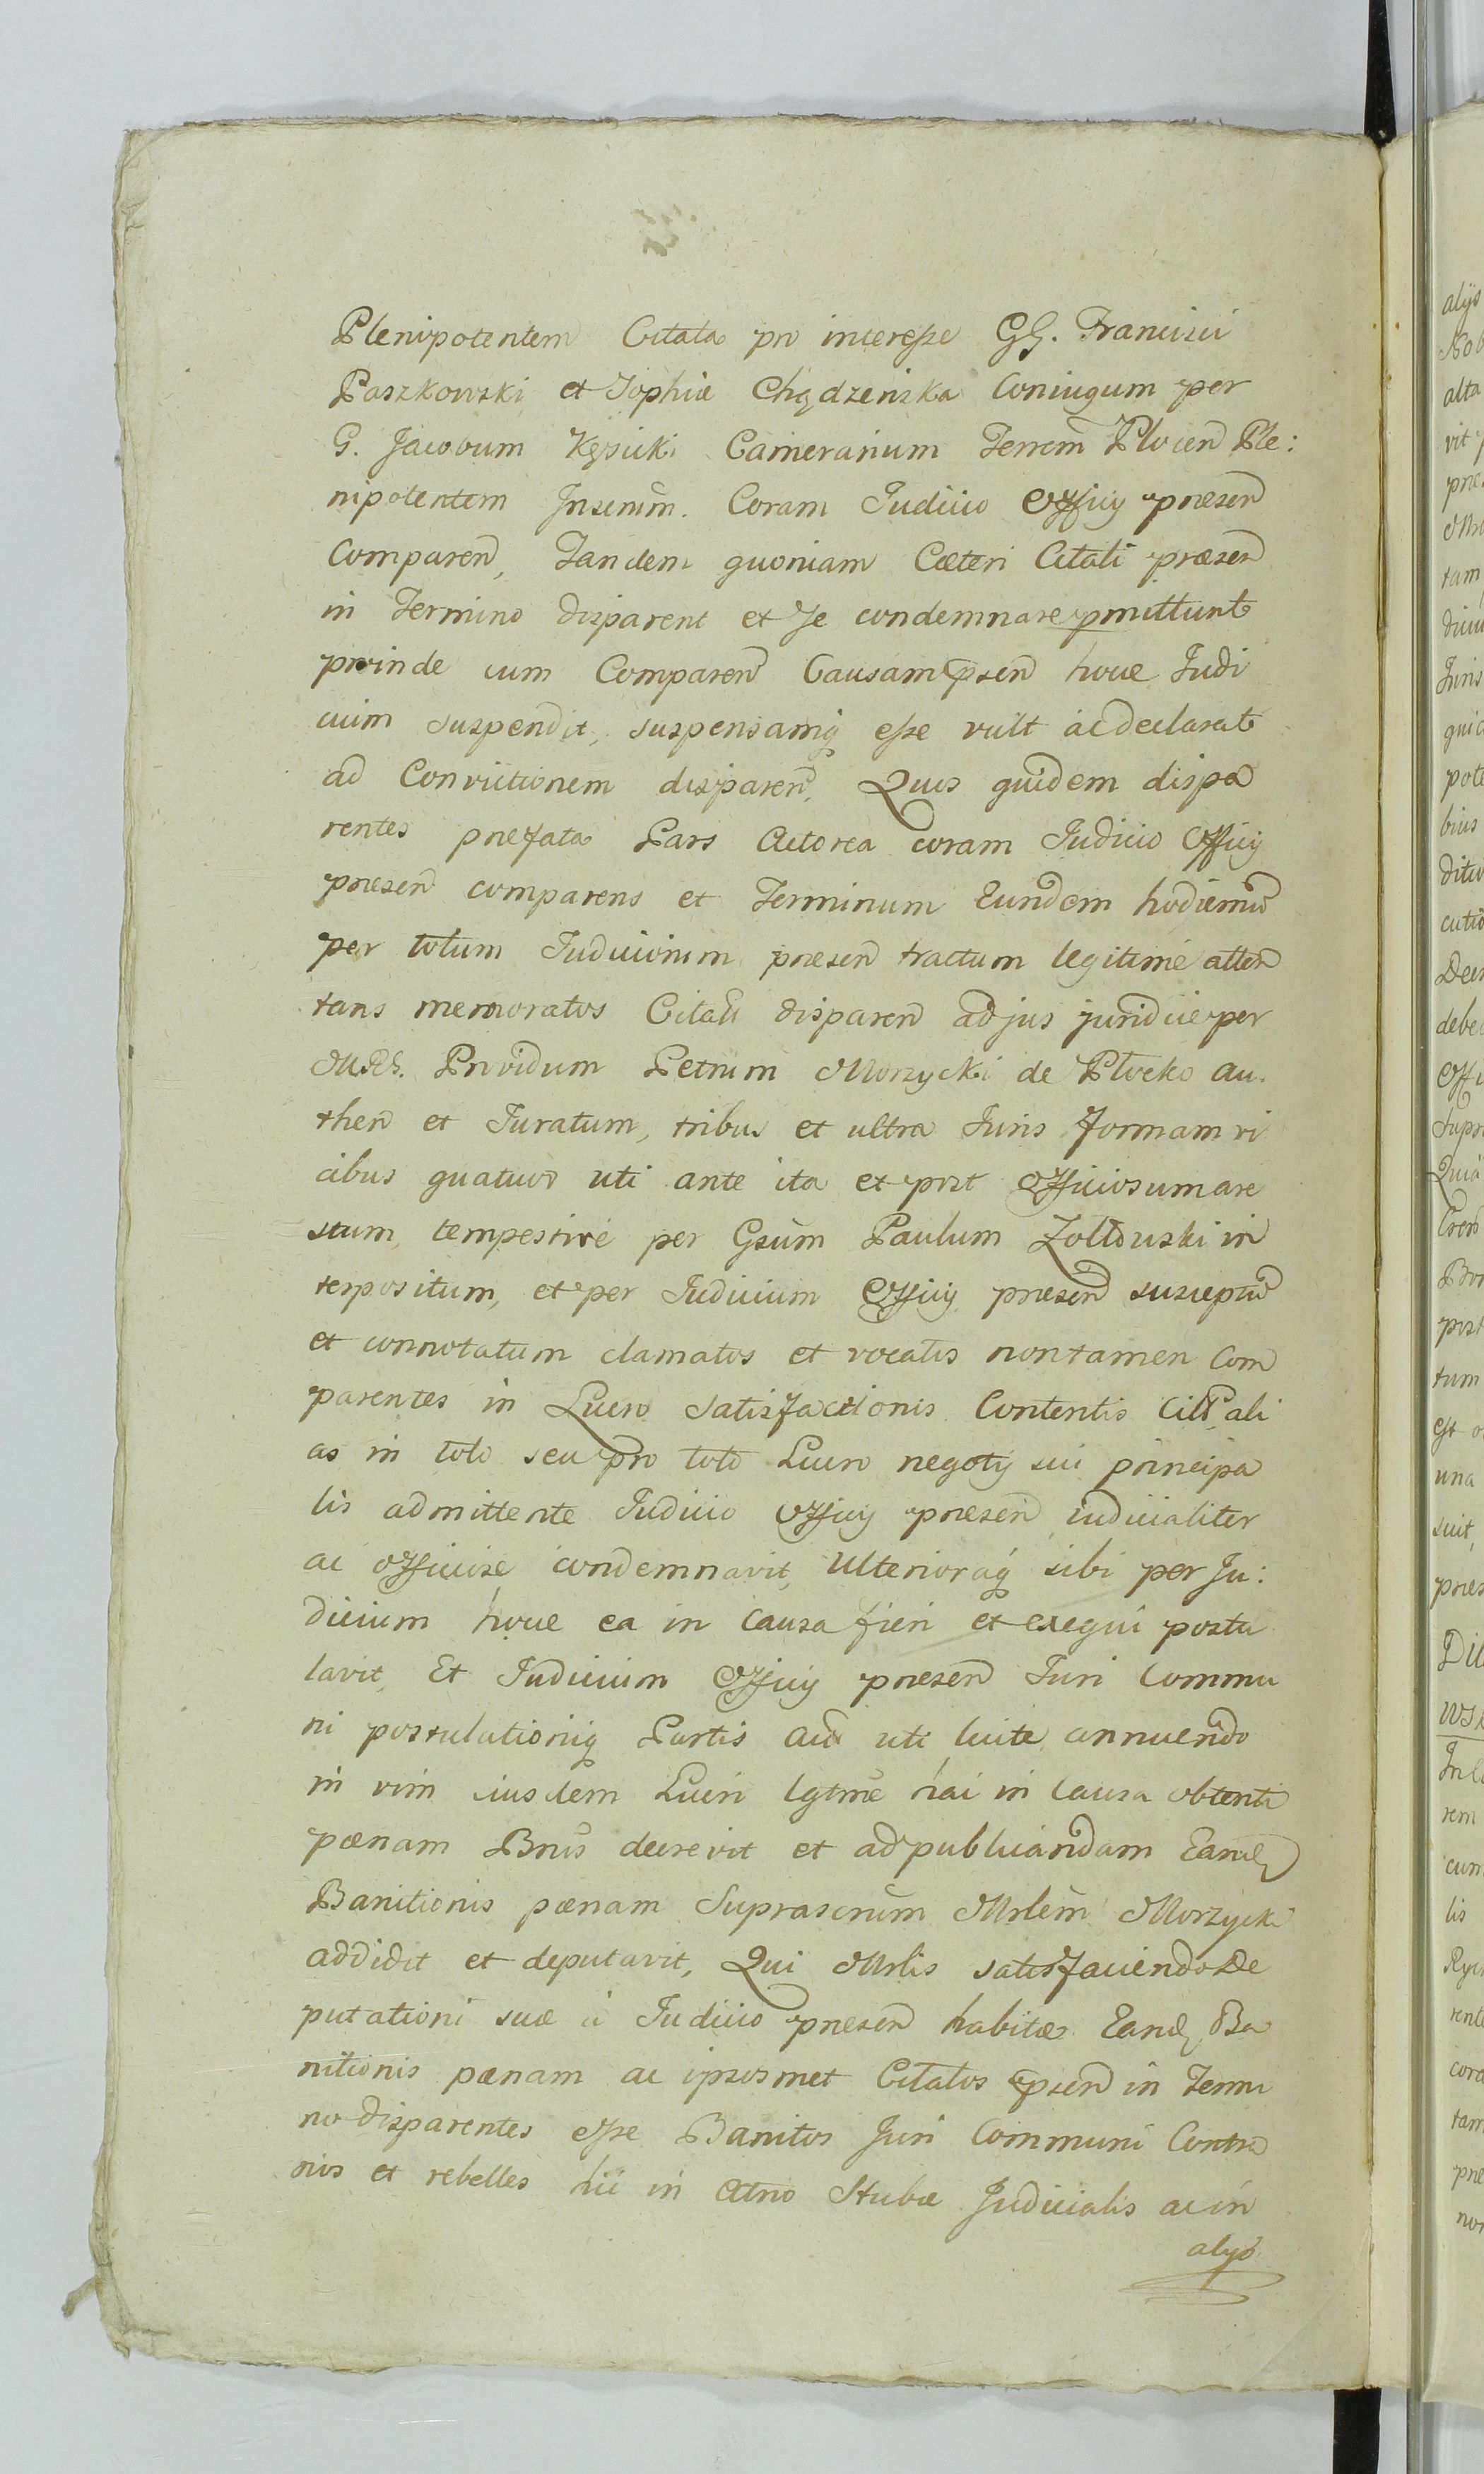 Plenipotentem Citata pro interesse GG. Francisci
Paszkowski et Sophiæ Chądzeńska Coniugum per
G. Jacobum Kęsicki Camerarium Terrem Plocen Ple:
nipotentem Inscrium. Coram Judicio Officij præsen
Comparen, Tandem quoniam Cæteri Citati præsen
in Termino disparent et se condemnare pmittunt
proinde cum Comparen Causam psen hocce Judi
cium suspendit, suspensamq esse vult ac declarat
ad Convictionem disparen, Quos quidem dispa
rentes præfata Pars Actorea coram Judicio Officij
præsen comparens et Terminum Eundem hodiernũ
per totum Judiciorum præsen tractum legitime atten
tans memoratos Citatt disparen ad jus juridicè per
Mrlẽ. Providum Petrum Morzycki de Plocko au.
then et Juratum, tribus et ultra Juris formam vi
cibus quatuor uti ante ita et post Officiosum are
stum, tempestivè per Gsum Paulum Zołtowski in
terpositum, et per Judicium Officij præsen susceptũ
et connotatum clamatos et vocatos non tamen Com
parentes in Lucro satisfactionis Contentis Citt ali
as in toto seu pro toto Lucro negotij sui principa
lis admittente Judicio Officij præsen judicialiter
ac officiose condemnavit, Ulterioraq sibi per Ju:
dicium hocce ea in causa fieri et exequi postu
lavit, Et Judicium Officij præsen Juri Commu
ni postulationiq Partis Act uti licite annuendo
in vim eiusdem Lucri lgtme hac in Causa obtenti
pænam Bnis decrevit et ad publicandam Eand
Banitionis pænam Suprascrium Mrlem Morzycki
addidit et deputavit, Qui Mrlis satisfaciendo De
putationi suæ a Judicio præsen habitæ Eand Ba
nitionis pænam ac ipsosmet Citatos psen in Termi
no disparentes esse Banitos Juri Communi Contra
rios et rebelles hic in Atrio Stubæ Judicialis ac in
alijs